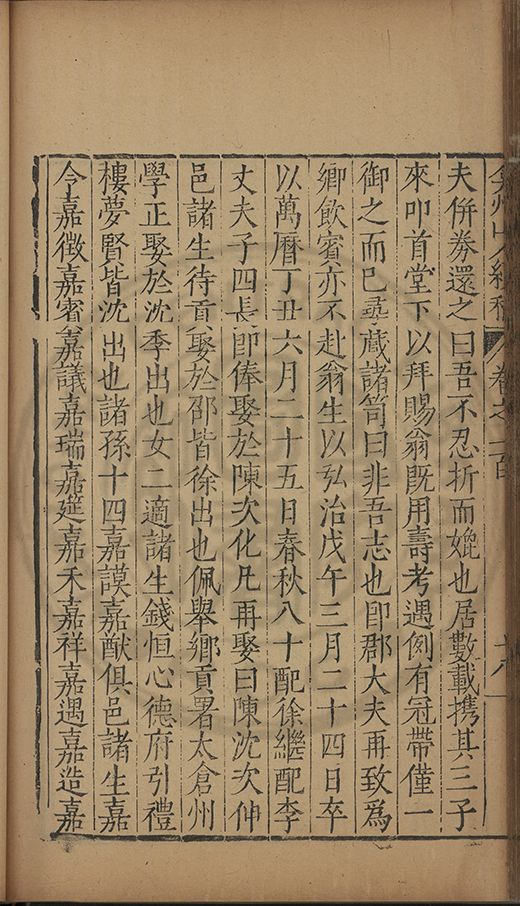 弇州山人續稿 卷之一百 十八
夫併券還之曰吾不忍折而媲也居數載携其三子
來叩首堂下以拜賜翁旣用壽考遇例有冠帶僅一
御之而巳尋藏諸笥曰非吾志也卽郡大夫再致爲
鄉飲賓亦不赴翁生以弘治戊午三月二十四日卒
以萬曆丁丑六月二十五日春秋八十配徐繼配李
丈夫子四長卽俸娶於陳次化凡再娶曰陳沈次仲
邑諸生待貢娶於邵皆徐出也佩舉鄉貢署太倉州
學正娶於沈季出也女二適諸生錢恒心德府引禮
樓夢賢皆沈出也諸孫十四嘉謨嘉猷俱邑諸生嘉
令嘉徵嘉賓嘉議嘉瑞嘉筵嘉禾嘉祥嘉遇嘉造嘉